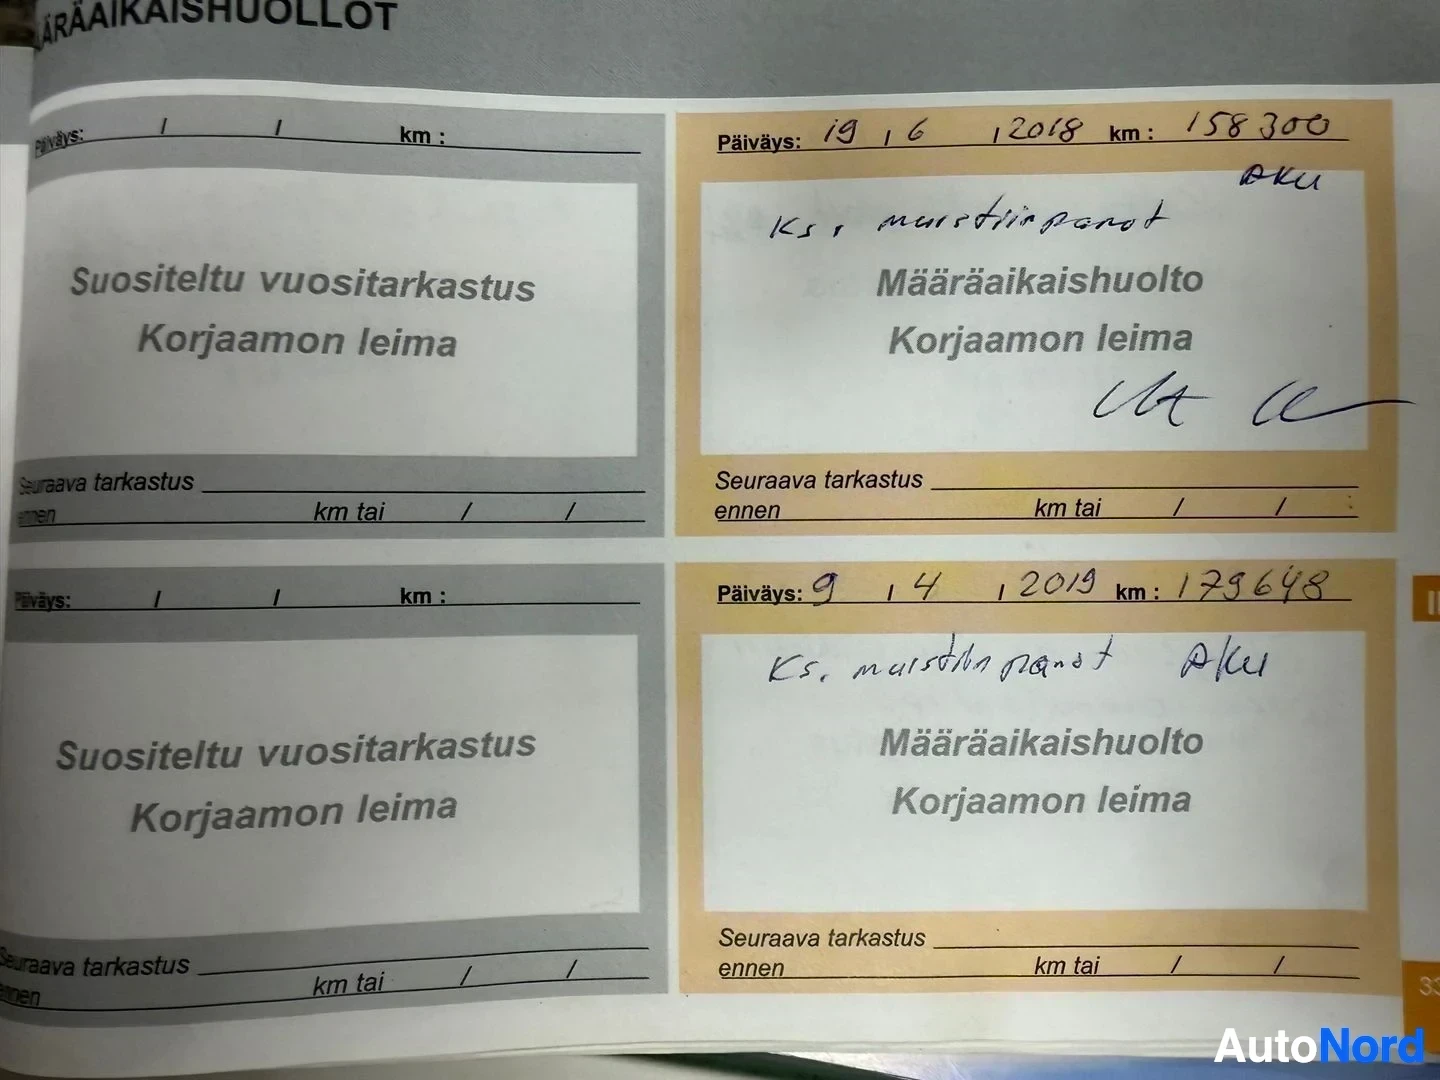 ÄRÄAIKAISHUOLLOT
Päiväys: / / km :
Suositeltu vuositarkastus
Korjaamon leima
Seuraava tarkastus
ennen km tai / /
Päiväys: 19 / 6 / 2018 km : 158300
AKU
Ks. muistiinpanot
Määräaikaishuolto
Korjaamon leima
Seuraava tarkastus
ennen km tai / /
Päiväys: / / km :
Suositeltu vuositarkastus
Korjaamon leima
Seuraava tarkastus
ennen km tai / /
Päiväys: 9 / 4 / 2019 km : 179648
Ks. muistiinpanot AKU
Määräaikaishuolto
Korjaamon leima
Seuraava tarkastus
ennen km tai / /
33
AutoNord